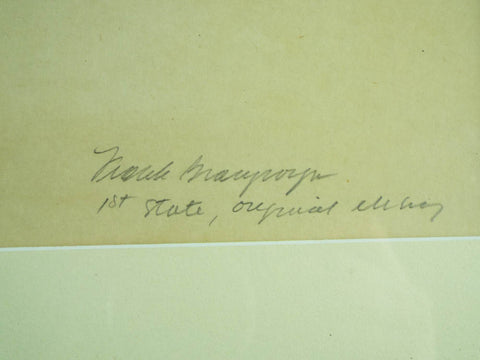 Frank Brangwyn
1st state, original etching